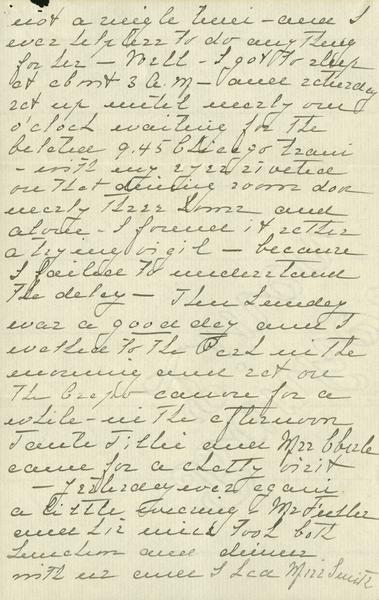 not a single time - and I
was helpless to do anything
for her - Well - I got to sleep
at about 3 A.M - and Saturday
sat up until nearly one
o'clock waiting for the
belated 9.45 Chicago train
- with my eyes riveted
on that dining room door
nearly three hours and
alone - I found it rather
a trying vigil - because
I failed to understand
the delay - Then Sunday
was a good day and I
walked to the Park in the
morning and sat on
the cannon for a
while - in the afternoon
Tante Tillie and Mrs Eberle
came for a chatty visit
- Yesterday was again
a little - Mr
and his took both
luncheon and dinner
with us and I had Miss Smith